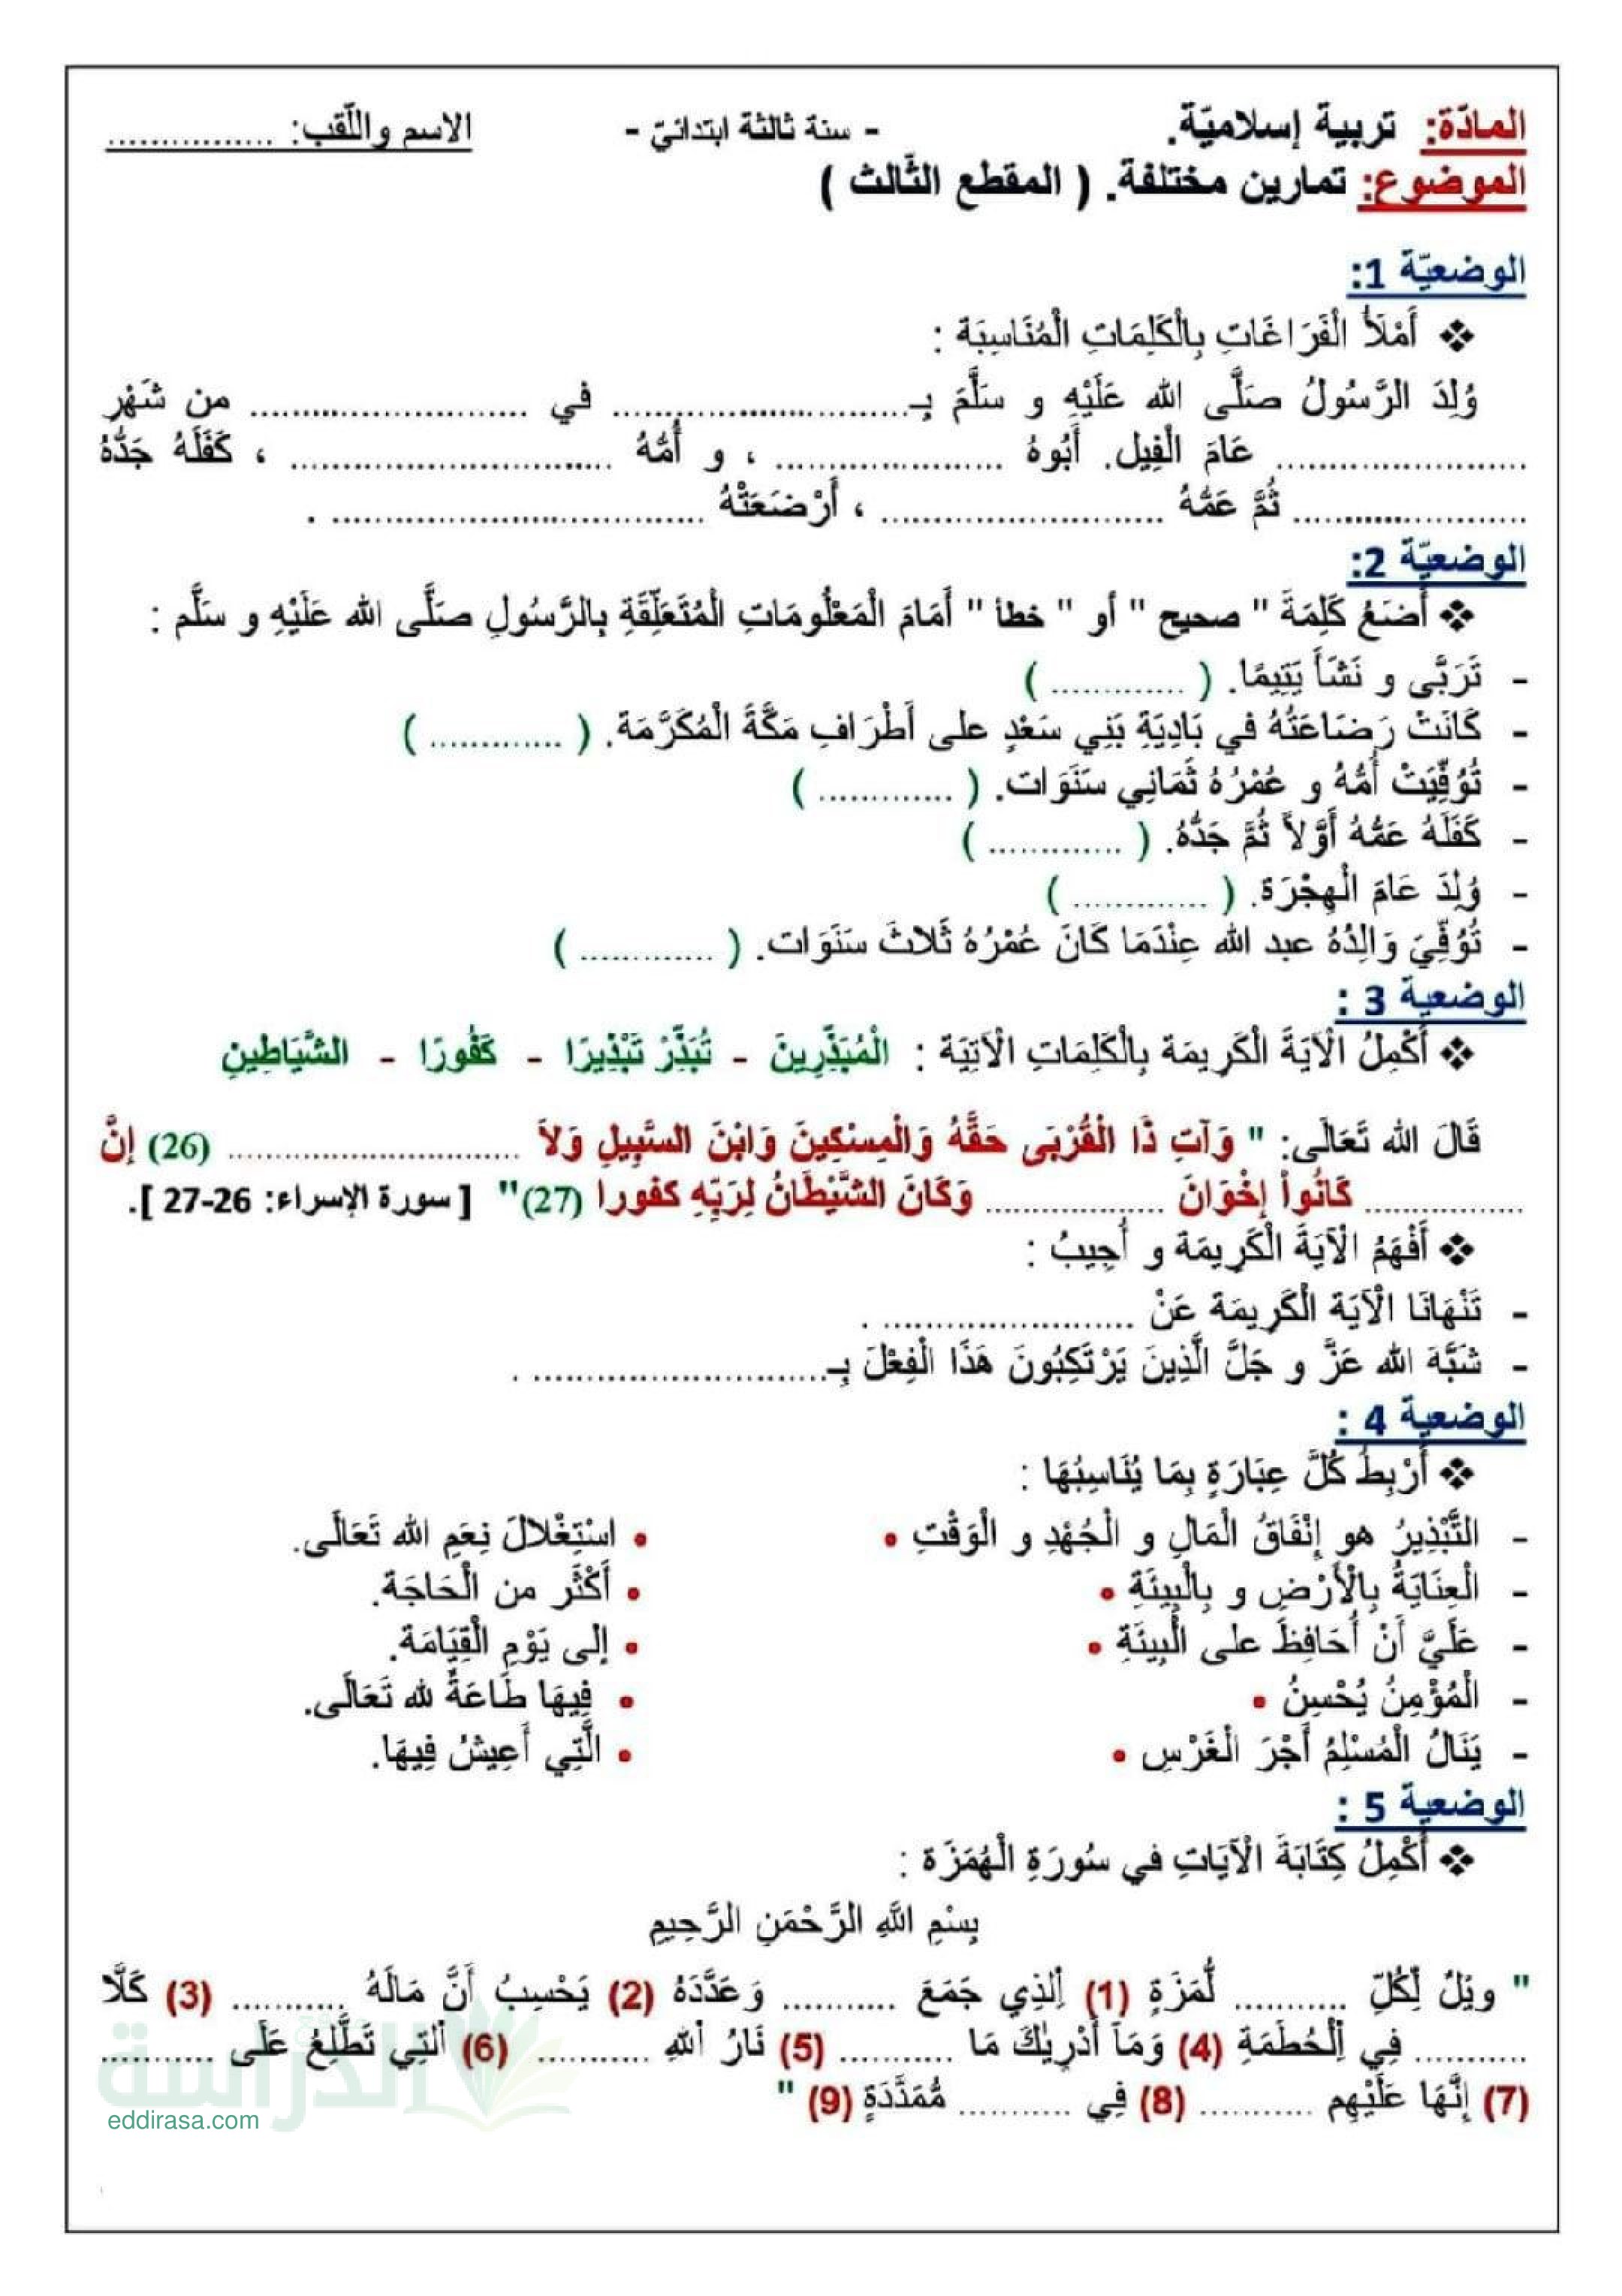 المادّة: تربية إسلاميّة. - سنة ثالثة ابتدائيّ - الاسم واللّقب: ................
الموضوع: تمارين مختلفة. ( المقطع الثّالث )
الوضعيّة 1:
❖ أَمْلَأُ الْفَرَاغَاتِ بِالْكَلِمَاتِ الْمُنَاسِبَة :
وُلِدَ الرَّسُولُ صَلَّى الله عَلَيْهِ و سَلَّمَ بِـ............................ في .......................... من شَهْرِ
........................ عَامَ الْفِيل. أَبُوهُ ...................... ، و أُمُّهُ .............................. ، كَفَلَهُ جَدُّهُ
...................... ثُمَّ عَمُّهُ .......................... ، أَرْضَعَتْهُ ................................ .
الوضعيّة 2:
❖ أَضَعُ كَلِمَةَ " صحيح " أو " خطأ " أَمَامَ الْمَعْلُومَاتِ الْمُتَعَلِّقَةِ بِالرَّسُولِ صَلَّى الله عَلَيْهِ و سَلَّم :
- تَرَبَّى و نَشَأَ يَتِيمًا. ( ............. )
- كَانَتْ رَضَاعَتُهُ في بَادِيَةِ بَنِي سَعْدٍ على أَطْرَافِ مَكَّةَ الْمُكَرَّمَة. ( ............. )
- تُوُفِّيَتْ أُمُّهُ و عُمْرُهُ ثَمَانِي سَنَوَات. ( ............. )
- كَفَلَهُ عَمُّهُ أَوَّلاً ثُمَّ جَدُّهُ. ( ............. )
- وُلِدَ عَامَ الْهِجْرَة. ( ............. )
- تُوُفِّيَ وَالِدُهُ عبد الله عِنْدَمَا كَانَ عُمْرُهُ ثَلاثَ سَنَوَات. ( ............. )
الوضعية 3 :
❖ أُكْمِلُ الْآيَةَ الْكَرِيمَة بِالْكَلِمَاتِ الْآتِيَة : الْمُبَذِّرِينَ - تُبَذِّرْ تَبْذِيرًا - كَفُورًا - الشَّيَاطِينِ
قَالَ الله تَعَالَى: " وَآتِ ذَا الْقُرْبَى حَقَّهُ وَالْمِسْكِينَ وَابْنَ السَّبِيلِ وَلاَ ............................ (26) إنَّ
................ كَانُواْ إِخْوَانَ ................. وَكَانَ الشَّيْطَانُ لِرَبِّهِ كفورا (27)" [ سورة الإسراء: 26-27 ].
❖ أَفْهَمُ الْآيَةَ الْكَرِيمَة و أُجِيبُ :
- تَنْهَانَا الْآيَة الْكَرِيمَة عَنْ ........................ .
- شَبَّهَ الله عَزَّ و جَلَّ الَّذِينَ يَرْتَكِبُونَ هَذَا الْفِعْلَ بِـ............................ .
الوضعية 4 :
❖ أَرْبِطُ كُلَّ عِبَارَةٍ بِمَا يُنَاسِبُهَا :
- التَّبْذِيرُ هو إِنْفَاقُ الْمَالِ و الْجُهْدِ و الْوَقْتِ • • اسْتِغْلالَ نِعَمِ الله تَعَالَى.
- الْعِنَايَةُ بِالْأَرْضِ و بِالْبِيئَةِ • • أَكْثَر من الْحَاجَة.
- عَلَيَّ أَنْ أُحَافِظَ على الْبِيئَةِ • • إلى يَوْمِ الْقِيَامَة.
- الْمُؤْمِنُ يُحْسِنُ • • فِيهَا طَاعَةٌ لله تَعَالَى.
- يَنَالُ الْمُسْلِمُ أَجْرَ الْغَرْسِ • • الَّتِي أَعِيشُ فِيهَا.
الوضعية 5 :
❖ أُكْمِلُ كِتَابَةَ الْآيَاتِ في سُورَةِ الْهُمَزَة :
بِسْمِ اللَّهِ الرَّحْمَنِ الرَّحِيمِ
" وَيْلٌ لِّكُلِّ ........... لُّمَزَةٍ (1) اِلذِي جَمَعَ ........... وَعَدَّدَهُ (2) يَحْسِبُ أَنَّ مَالَهُ ........... (3) كَلَّا
........... فِي اِلْحُطَمَةِ (4) وَمَآ أَدْرِيٰكَ مَا ........... (5) نَارُ اللهِ ........... (6) اَلتِي تَطَّلِعُ عَلَى ...........
(7) إِنَّهَا عَلَيْهِم ........... (8) فِي ........... مُّمَدَّدَةٍ (9) "
الدراسة
eddirasa.com